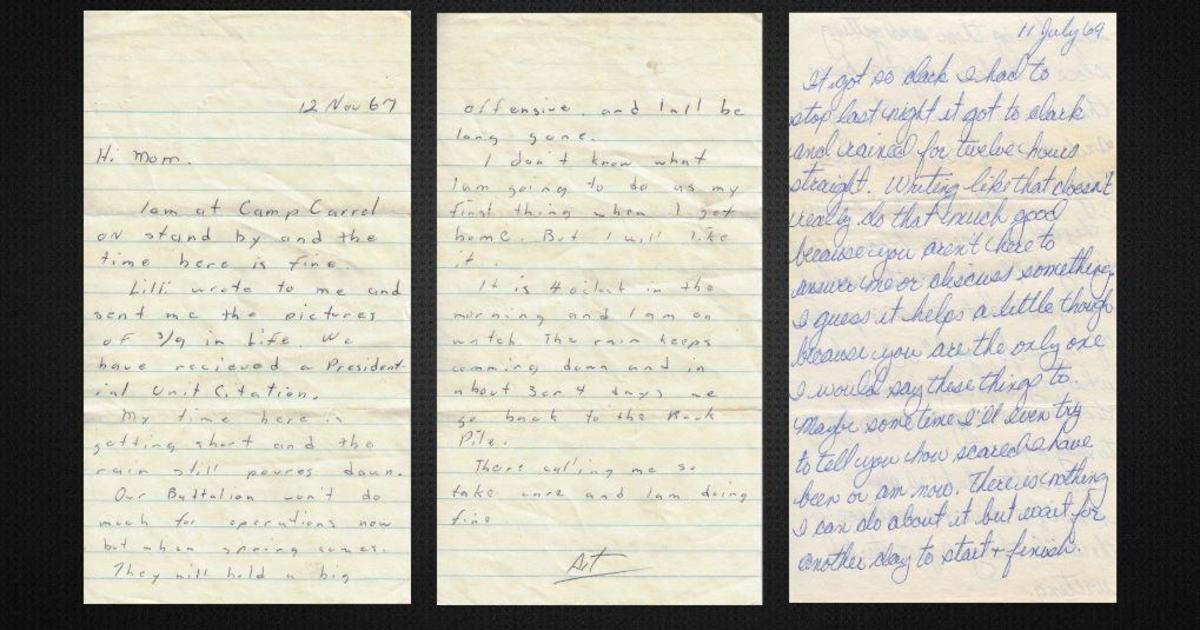 12 Nov 67
Hi Mom.
I am at Camp Carrol
on stand by and the
time here is fine.
Lilli wrote to me and
sent me the pictures
of 3/9 in Life. We
have recieved a President-
ial Unit Citation.
My time here is
getting short and the
rain still poures down.
Our Battalion won't do
much for operations now
but when spring comes.
They will hold a big
offensive and I will be
long gone.
I don't know what
I am going to do as my
first thing when I get
home. But I will like
it.
It is 4 oclock in the
morning and I am on
watch. The rain keeps
comming down and in
about 3 or 4 days we
go back to the Rock
Pile.
There calling me so
take care and I am doing
fine
Art
11 July 69
It got so dark I had to
stop last night it got to dark
and rained for twelve hours
straight. Writing like that doesn't
really do that much good
because you aren't here to
answer me or discuss something.
I guess it helps a little though
because you are the only one
I would say these things to.
Maybe sometime I'll even try
to tell you how scared I have
been or am now. There is nothing
I can do about it but wait for
another day to start + finish.